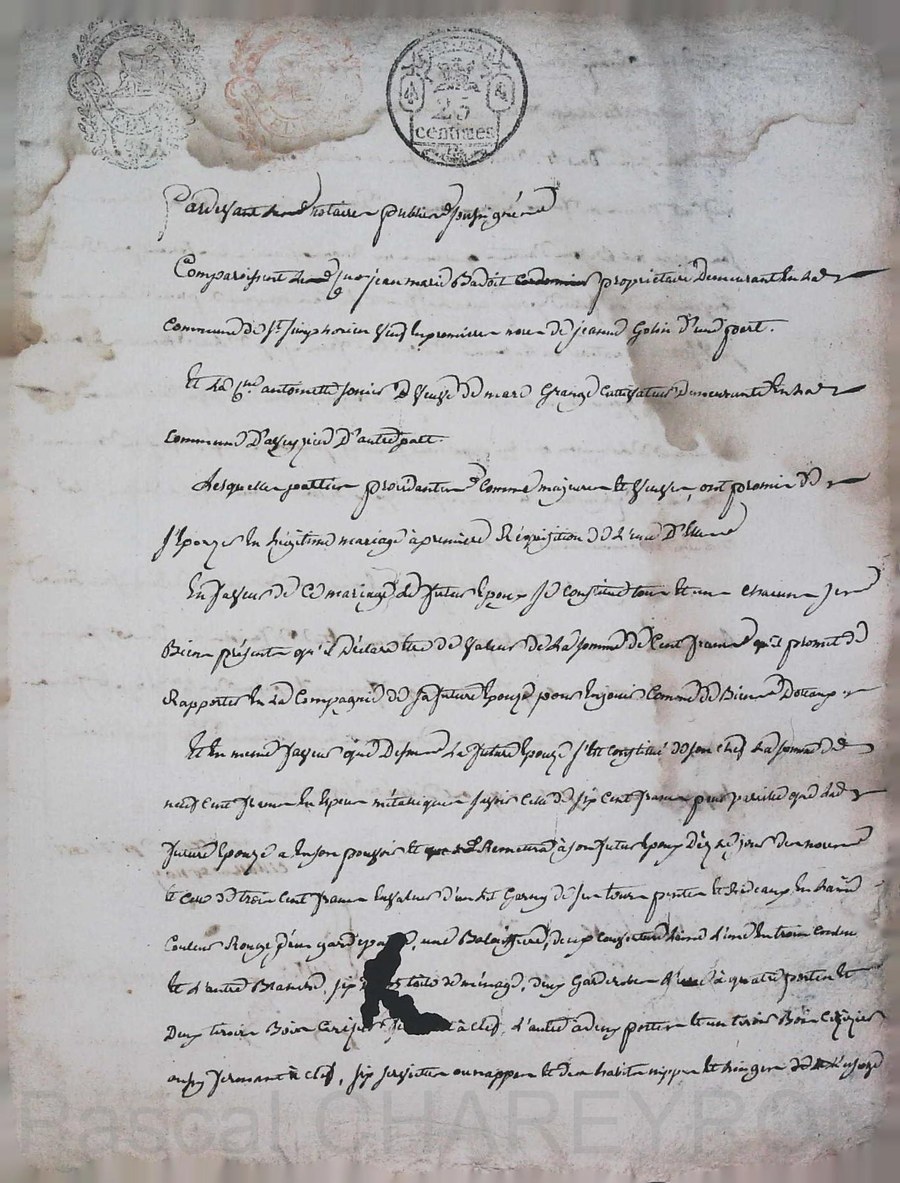 25
centimes
Pardevant notaire public soussigné
Comparoissent sieur jean marie Badoit propriétaire demeurant en la
commune de St Simphorien veuf en premiere noce de jeanne Gohin d'une part.
Et la antoinette veuve de marc Grange cultivateur demeurante en la
commune D'aveyzieu D'autre part.
Lesquelles parties procedantes comme majeures et veuves, ont promis de
s'Epouzer en légitime mariage à premiere Réquisition de L'une D'elles
En faveur de ce mariage le futur Epoux se constitue tous et un chacun ses
Biens présents qu'il déclare être de valeur de la somme de Cent francs qu'il promet de
Rapporter en la Compagnie de sa future Epouze pour en jouir Comme de Biens Dotaux
Et en meme faveur que Dessus La future Epouze s'est constitué de son chef La somme de
neuf cent francs en Espece métalique savoir celle de six cent francs que lad
future Epouze a en son pouvoir et Remettra à son futur Epoux Dèz le jour de noces
et celle de trois cent francs en valeur d'un lit Garny de ses tours pentes et Rideaux en laine
Couleur Rouge, une Balassiere, deux couvertures d'une en
et L'autre Blanche, six toile de ménage, deux Garderobes L'une à quatre portes et
Deux tiroirs Bois Cerisier à clef, L'autre à deux portes et un tiroir Bois Cerisier
aussy fermant à clef, six serviettes ou nappes et des habits nippes et linges de
Pascal CHAREYRON